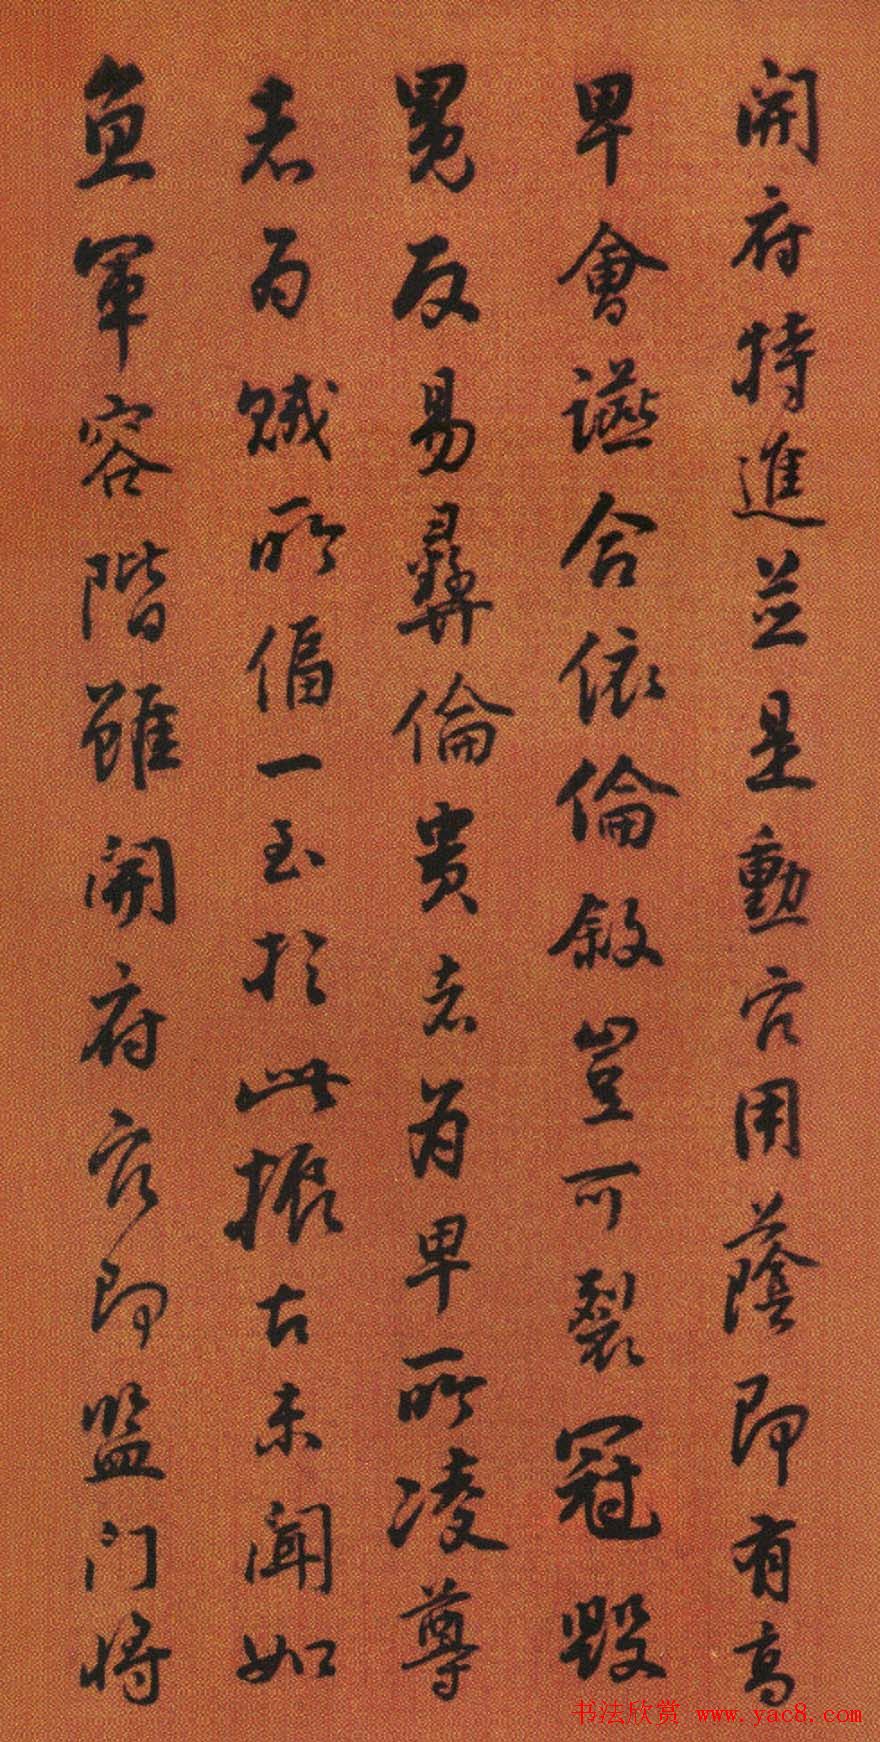 開府特進並是勳官用蔭即有高
卑會讌合依倫敘豈可裂冠毀
冕反易彝倫貴者為卑所凌尊
者為賊所偪一至於此振古未聞如
魚軍容階雖開府官即監門將
书法欣赏 www.yac8.com